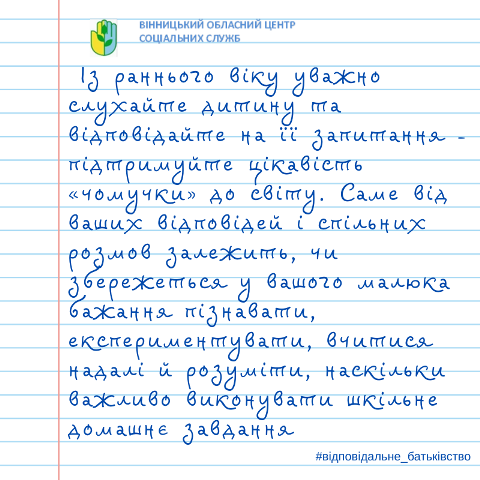 ВІННИЦЬКИЙ ОБЛАСНИЙ ЦЕНТР
СОЦІАЛЬНИХ СЛУЖБ
Із раннього віку уважно
слухайте дитину та
відповідайте на її запитання -
підтримуйте цікавість
«чомучки» до світу. Саме від
ваших відповідей і спільних
розмов залежить, чи
збережеться у вашого малюка
бажання пізнавати,
експериментувати, вчитися
надалі й розуміти, наскільки
важливо виконувати шкільне
домашнє завдання
#відповідальне_батьківство